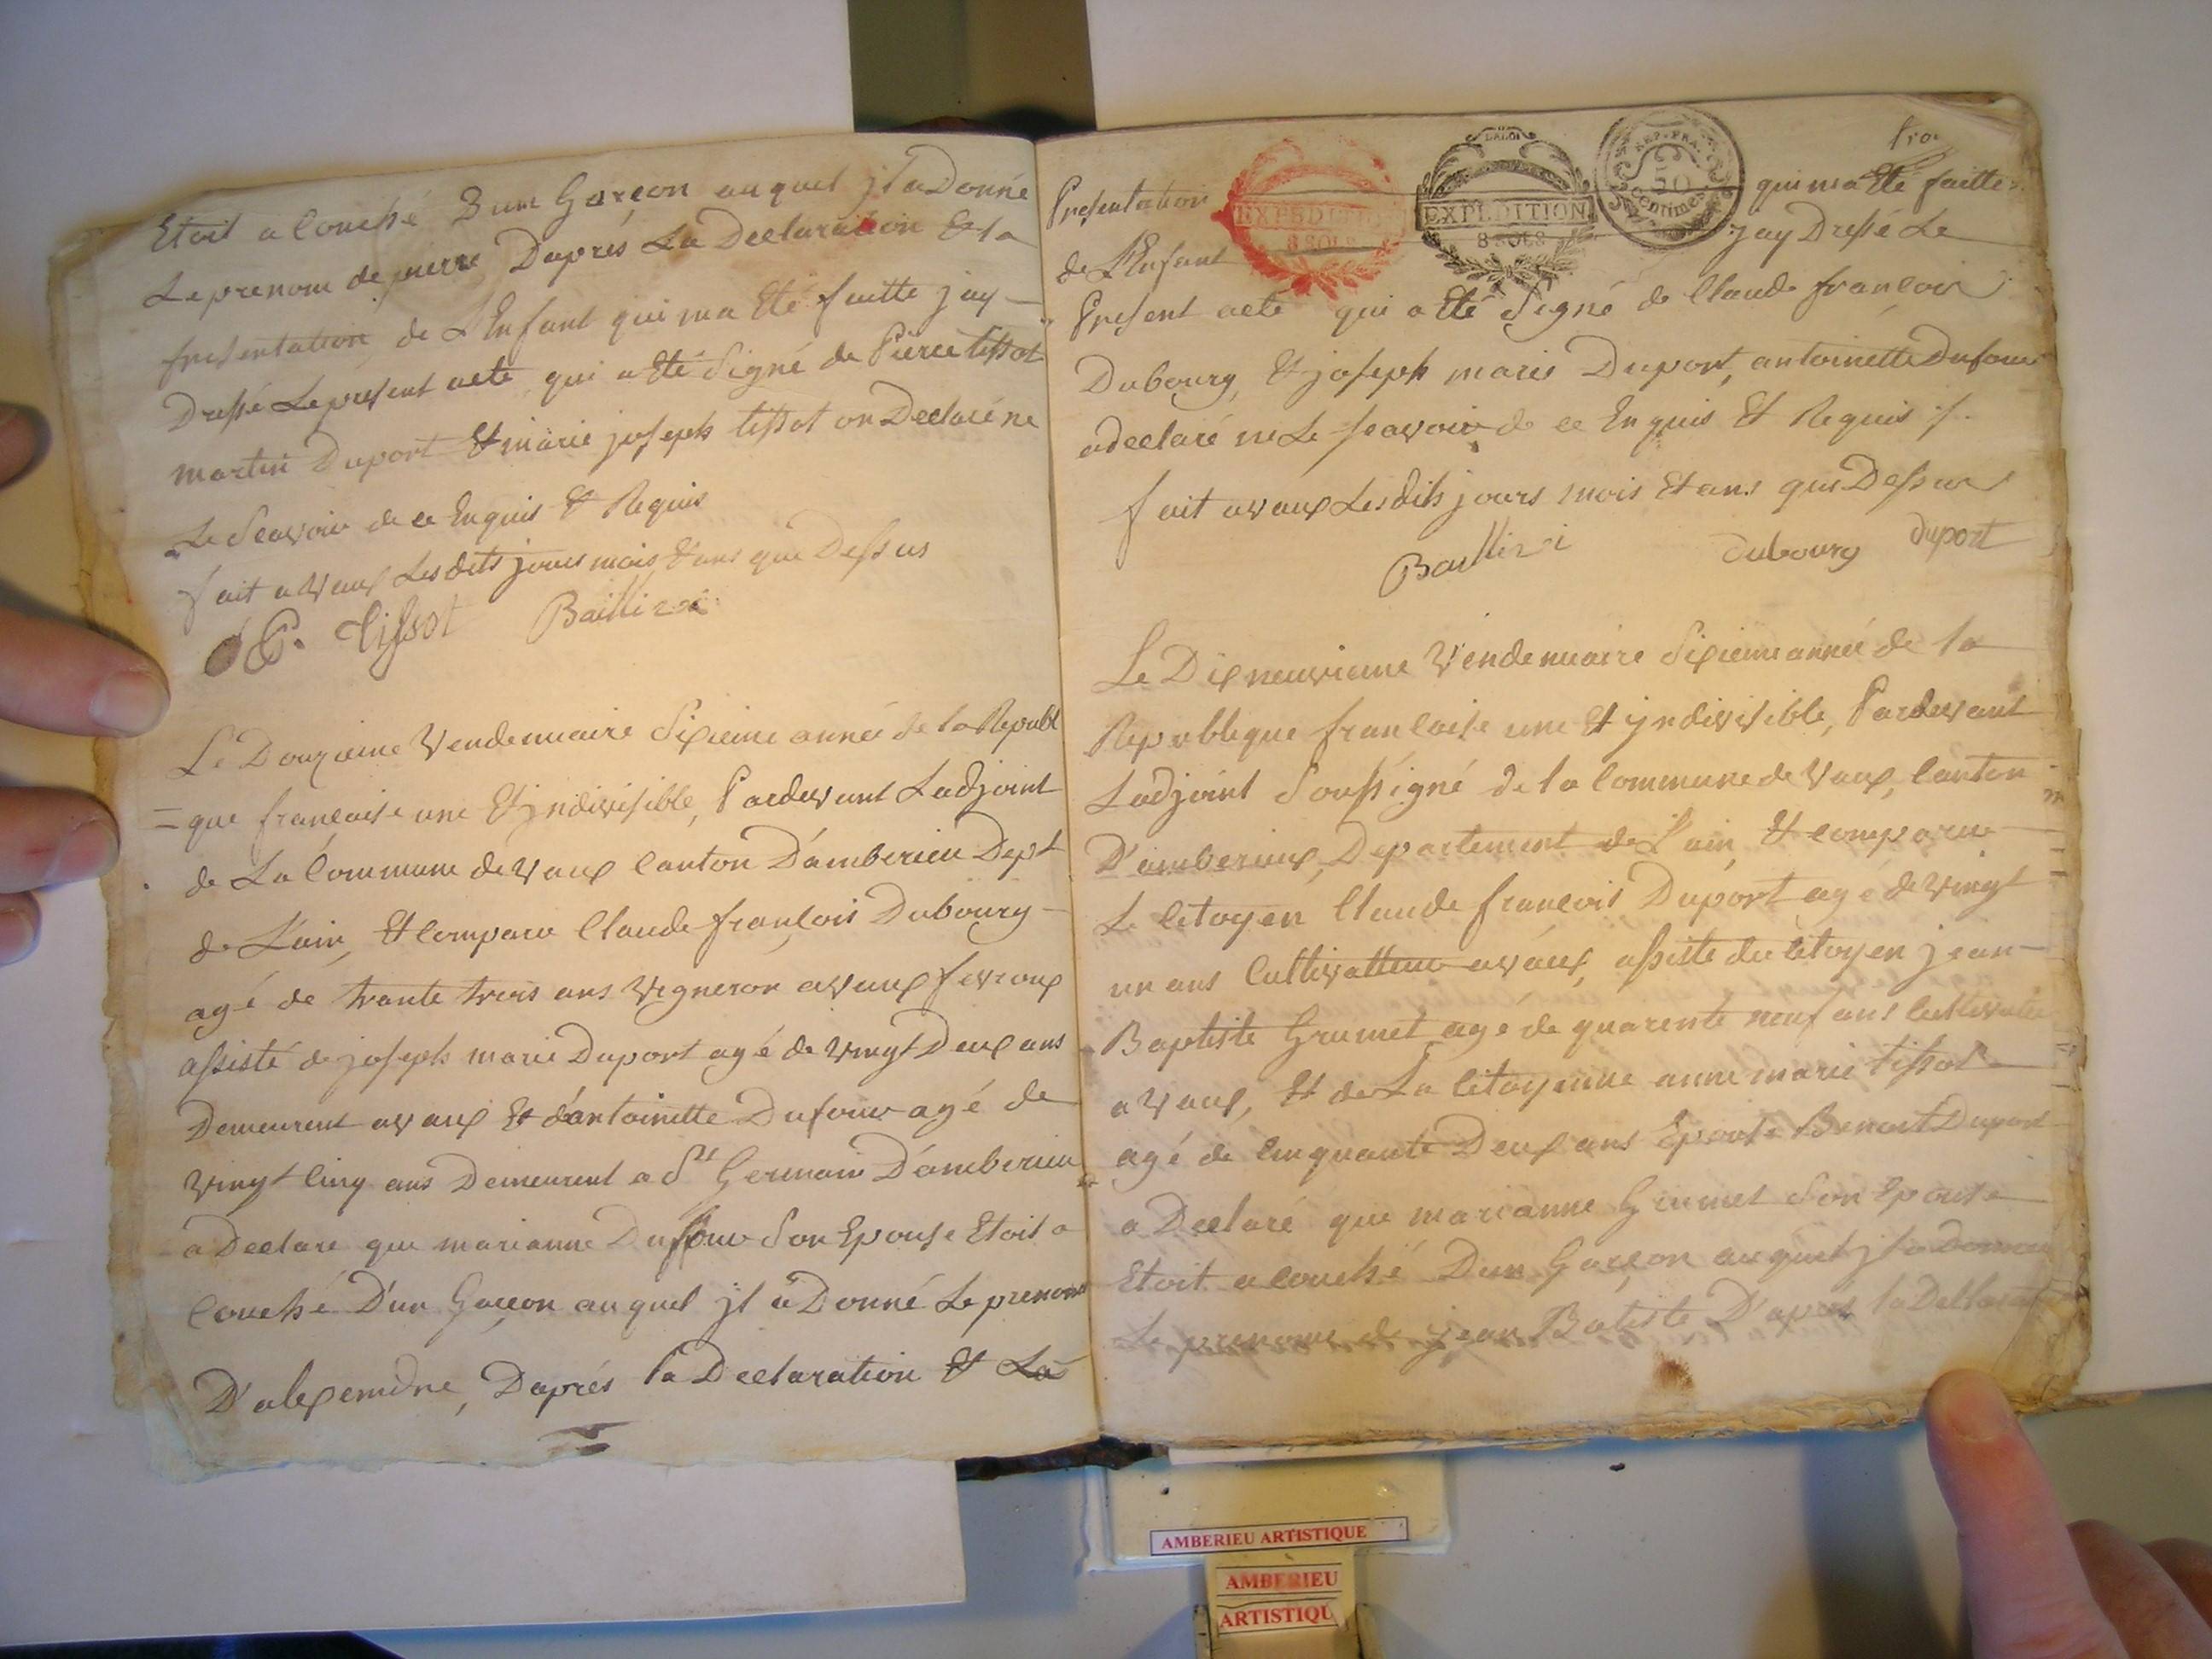 Etoit a Couché D'un Garcon auquel jl a Donné
Le prenom de pierre, Daprés La Declaration Et la
presentation de L'Enfant qui ma Eté faitte jay
Dressé Le present acte qui a Eté Signé de Pierre tissot
martin Duport Et marie joseph tissot on Declaré ne
Le Seavoir de ce Enquis Et Requis
fait a Vaux Les dits jours mois Et ans que Dessus
P. tissot Baillivi
Le Douzieme Vendemiaire Sixieme année de la Republ
= que francaise une Et jndivisible, Pardevant Ladjoint
de La Commune de Vaux Canton D'amberieu Dept
de L'ain, Et Comparu Claude francois Dubourg
agé de trante trois ans Vigneron a Vaux fevroux
assisté de joseph marie Duport agé de Vingt Deux ans
Demeurent a Vaux Et d'antoinette Dufour agé de
Vingt Cinq ans Demeurent a St Germain D'amberieu
a Declare que marianne Dufour Son Epouse Etoit a
Couché D'un Garcon auquel jl a Donné Le prenom
D'alexendre, Daprés la Declaration Et La
Presentation EXPEDITION 8 SOLS EXPEDITION 8 SOLS REP. FRA. 50 Centimes qui ma Eté faitte
de L'Enfant jay Dressé Le
Present acte qui a Eté Signé de Claude francois
Dubourg, Et joseph marie Duport, antoinette Dufour
a declaré ne Le seavoir de ce Enquis Et Requis
fait a Vaux Les dits jours mois Et ans que Dessus
Baillivi Dubourg duport
Le Dix neuvieme Vendemiaire Sixieme année de la
Republique francaise une Et jndivisible, Pardevant
Ladjoint Soussigné de la Commune de Vaux, Canton
D'amberieux, Departement de l'ain, Et comparu
Le Citoyen Claude francois Duport agé de Vingt
un ans Cultivatteur a Vaux, assisté du Citoyen jean
Baptiste Grumet agé de quarente neuf ans Cultivateur
a Vaux, Et de La Citoyenne anne marie tissot
agé de Cinquante Deux ans Epouse Benoit Duport
a Declaré que marianne Grumet Son Epouse
Etoit a Couché D'un Garcon auquel jl a Donné
Le prenom de jean Batiste D'apres la Declarat
AMBERIEU ARTISTIQUE
AMBERIEU
ARTISTIQU